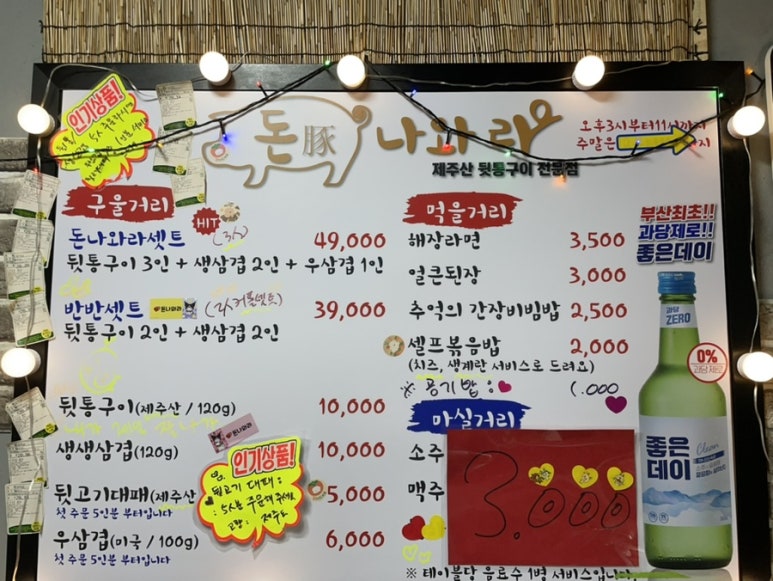 인기상품!
돈 豚 나와라
제주산 뒷통구이 전문점
오후3시부터11시까지
주말은
구울거리
HIT
돈나와라셋트 49,000
뒷통구이 3인 + 생삼겹 2인 + 우삼겹 1인
반반셋트 (2人 커플셋트) 39,000
뒷통구이 2인 + 생삼겹 2인
뒷통구이(제주산 / 120g) 10,000
생생삼겹(120g) 10,000
뒷고기대패(제주산 5,000
첫 주문 5인분 부터입니다
우삼겹(미국 / 100g) 6,000
첫 주문 5인분 부터입니다
인기상품!
뒷고기 대패 :
먹을거리
해장라면 3,500
얼큰된장 3,000
추억의 간장비빔밥 2,500
셀프볶음밥 2,000
(치즈, 생계란 서비스로 드려요)
※ 공기밥 : 1.000
마실거리
소주
맥주
3.000
※ 테이블당 음료수 1병 서비스입니다
부산최초!!
과당제로!!
좋은데이
과당
ZERO
0%
과당 제로
좋은
데이